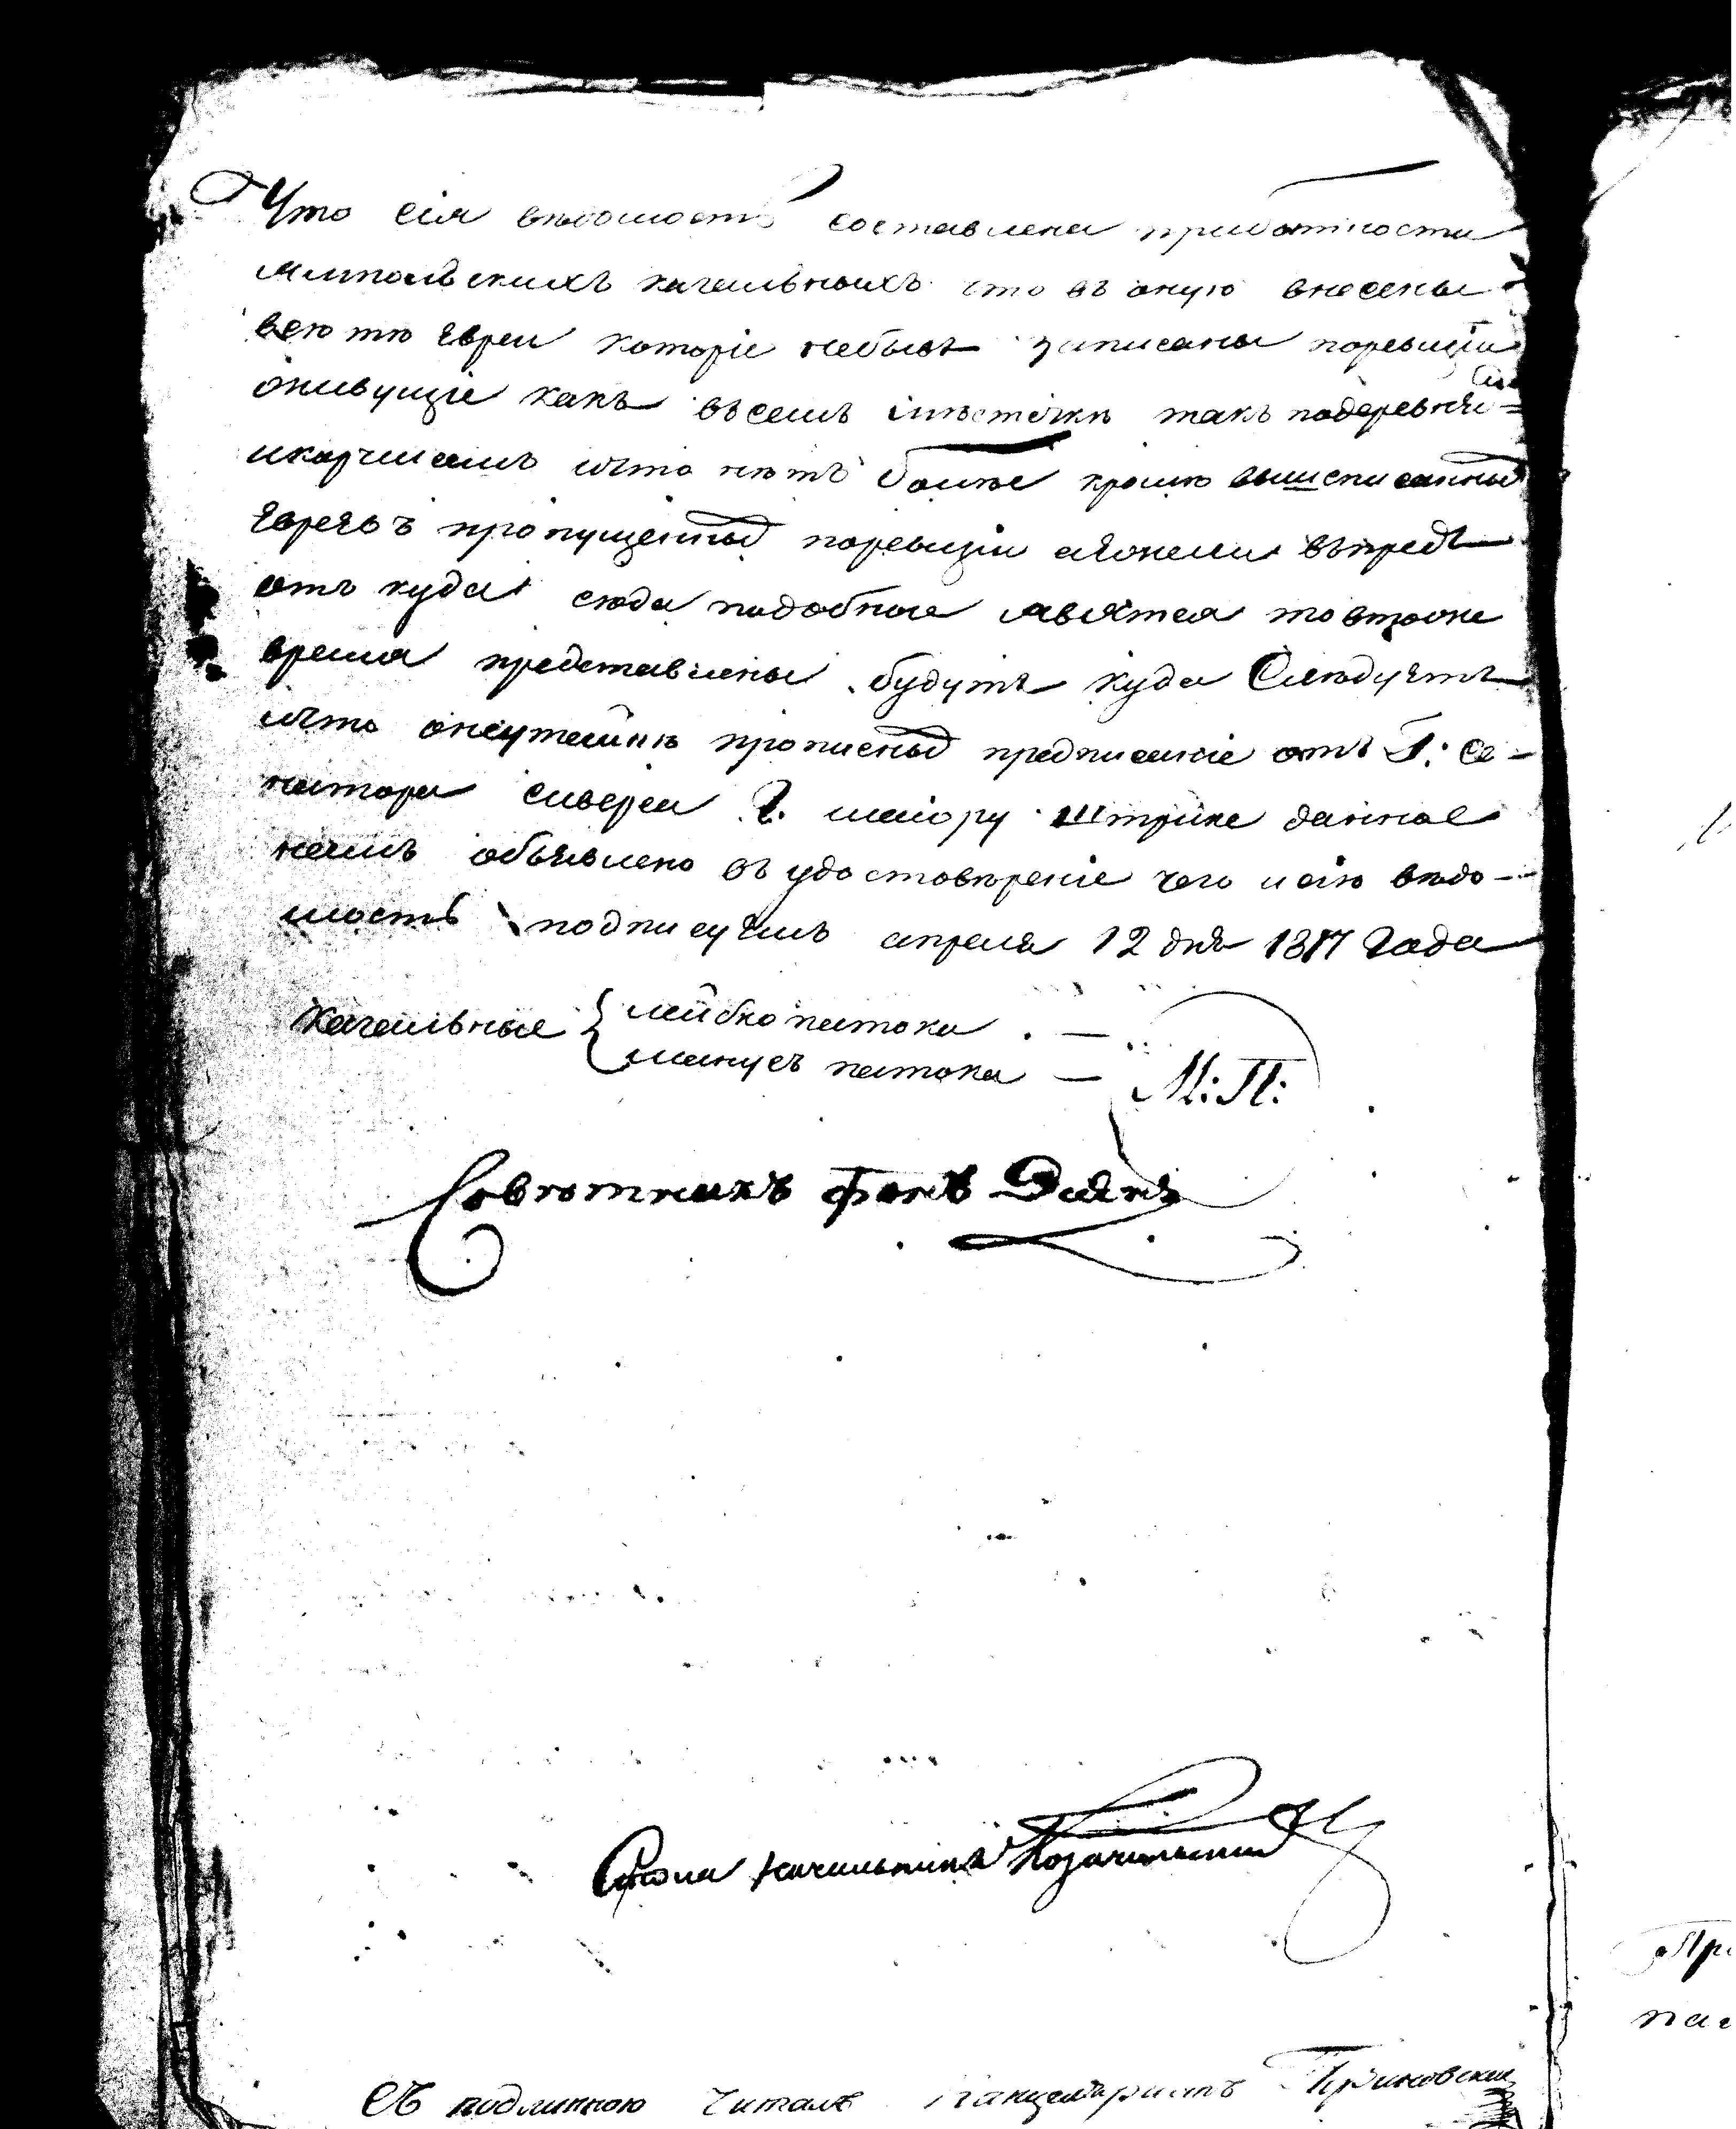 Что сія вѣдомость составлена прибытности
кагальныхъ что въ оную внесены
всю тѣ Евреи которіе небыли записаны поревизіи
живущіе какъ всемъ мѣстечкѣ такъ подеревнямъ
икорчмамъ ичто нѣтъ болѣе кромѣ вышеписанныхъ
Евреевъ пропущенныхъ поревизіи аежели впредъ
отъ куда сюда подобные явятся товтоже
время представлены будутъ куда Слѣдуетъ
ичто прописныхъ предписаніе отъ Г: Се-
натора сиверса Г. маіору штрике данное
намъ объявлено въ удостовѣреніе чего исію вѣдо-
мость подписуемъ апреля 12 дня 1817 Года
Кагальные { лейбко патока
манусъ патока
М: П:
Совѣтникъ фонъ
Стола начальникъ
Съ подлинною Читалъ канцеляристъ